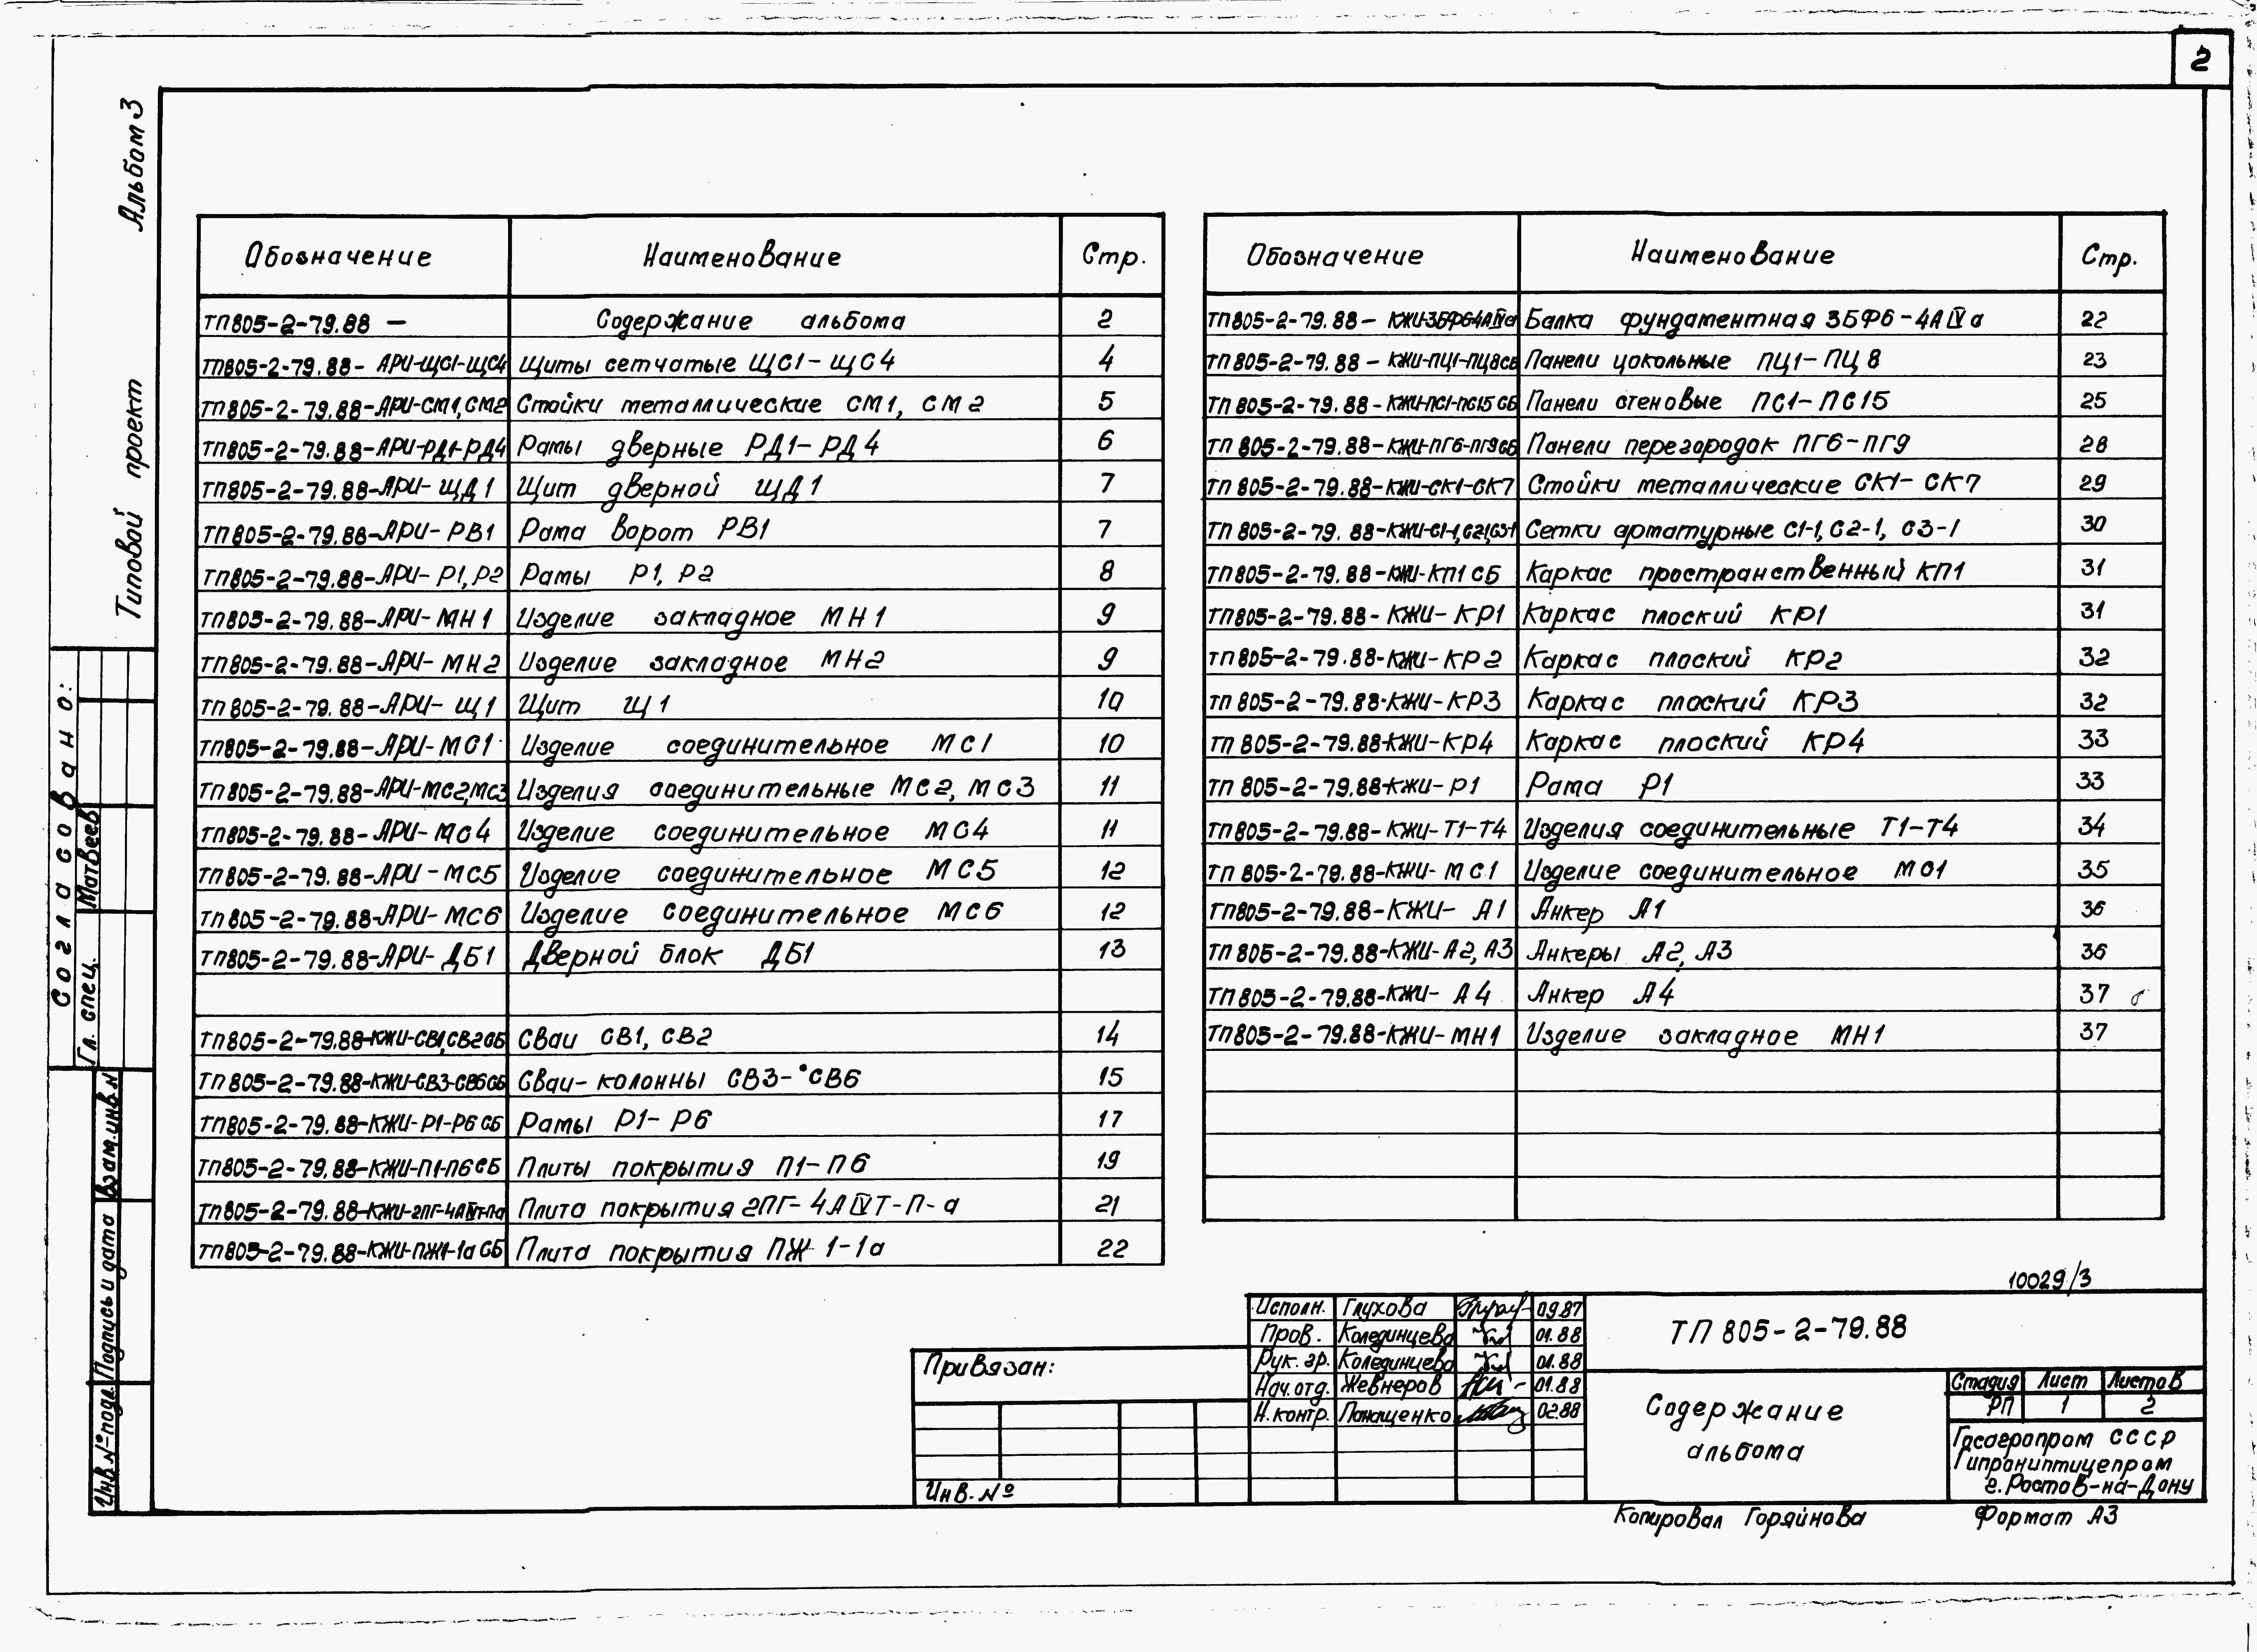 2
Альбом 3
Типовой проект
Согласовано:
Гл. спец. Матвеев
Взам. инв. №
Подпись и дата
Инв. № подл.
Обозначение Наименование Стр.
ТП805-2-79.88 — Содержание альбома 2
ТП805-2-79.88-АРИ-ЩС1-ЩС4 Щиты сетчатые ЩС1-ЩС4 4
ТП805-2-79.88-АРИ-СМ1,СМ2 Стойки металлические СМ1, СМ2 5
ТП805-2-79.88-АРИ-РД1-РД4 Рамы дверные РД1-РД4 6
ТП805-2-79.88-АРИ-ЩД1 Щит дверной ЩД1 7
ТП805-2-79.88-АРИ-РВ1 Рама ворот РВ1 7
ТП805-2-79.88-АРИ-Р1,Р2 Рамы Р1, Р2 8
ТП805-2-79.88-АРИ-МН1 Изделие закладное МН1 9
ТП805-2-79.88-АРИ-МН2 Изделие закладное МН2 9
ТП805-2-79.88-АРИ-Щ1 Щит Щ1 10
ТП805-2-79.88-АРИ-МС1 Изделие соединительное МС1 10
ТП805-2-79.88-АРИ-МС2,МС3 Изделия соединительные МС2, МС3 11
ТП805-2-79.88-АРИ-МС4 Изделие соединительное МС4 11
ТП805-2-79.88-АРИ-МС5 Изделие соединительное МС5 12
ТП805-2-79.88-АРИ-МС6 Изделие соединительное МС6 12
ТП805-2-79.88-АРИ-ДБ1 Дверной блок ДБ1 13
ТП805-2-79.88-КЖИ-СВ1,СВ2СБ Сваи СВ1, СВ2 14
ТП805-2-79.88-КЖИ-СВ3-СВ6СБ Сваи-колонны СВ3-СВ6 15
ТП805-2-79.88-КЖИ-Р1-Р6 СБ Рамы Р1-Р6 17
ТП805-2-79.88-КЖИ-П1-П6СБ Плиты покрытия П1-П6 19
ТП805-2-79.88-КЖИ-2ПГ-4АIVТ-Па Плита покрытия 2ПГ-4АIVТ-П-а 21
ТП805-2-79.88-КЖИ-ПЖ1-1а СБ Плита покрытия ПЖ 1-1а 22
Обозначение Наименование Стр.
ТП805-2-79.88-КЖИ-3БФ6-4АIVа Балка фундаментная 3БФ6-4АIVа 22
ТП805-2-79.88-КЖИ-ПЦ1-ПЦ8СБ Панели цокольные ПЦ1-ПЦ8 23
ТП805-2-79.88-КЖИ-ПС1-ПС15 СБ Панели стеновые ПС1-ПС15 25
ТП805-2-79.88-КЖИ-ПГ6-ПГ9СБ Панели перегородок ПГ6-ПГ9 28
ТП805-2-79.88-КЖИ-СК1-СК7 Стойки металлические СК1-СК7 29
ТП805-2-79.88-КЖИ-С1-1,С2-1,С3-1 Сетки арматурные С1-1, С2-1, С3-1 30
ТП805-2-79.88-КЖИ-КП1 СБ Каркас пространственный КП1 31
ТП805-2-79.88-КЖИ-КР1 Каркас плоский КР1 31
ТП805-2-79.88-КЖИ-КР2 Каркас плоский КР2 32
ТП805-2-79.88-КЖИ-КР3 Каркас плоский КР3 32
ТП805-2-79.88-КЖИ-КР4 Каркас плоский КР4 33
ТП805-2-79.88-КЖИ-Р1 Рама Р1 33
ТП805-2-79.88-КЖИ-Т1-Т4 Изделия соединительные Т1-Т4 34
ТП805-2-79.88-КЖИ-МС1 Изделие соединительное МС1 35
ТП805-2-79.88-КЖИ-А1 Анкер А1 36
ТП805-2-79.88-КЖИ-А2,А3 Анкеры А2, А3 36
ТП805-2-79.88-КЖИ-А4 Анкер А4 37
ТП805-2-79.88-КЖИ-МН1 Изделие закладное МН1 37
10029/3
Исполн. Глухова 09.87
Пров. Колединцева 01.88
Рук. гр. Колединцева 01.88
Нач. отд. Жевнеров 01.88
Н. контр. Панащенко 02.88
Привязан:
Инв. №
ТП 805-2-79.88
Содержание
альбома
Стадия Лист Листов
РП 1 2
Госагропром СССР
Гипрониптицепром
г. Ростов-на-Дону
Копировал Горяйнова Формат А3